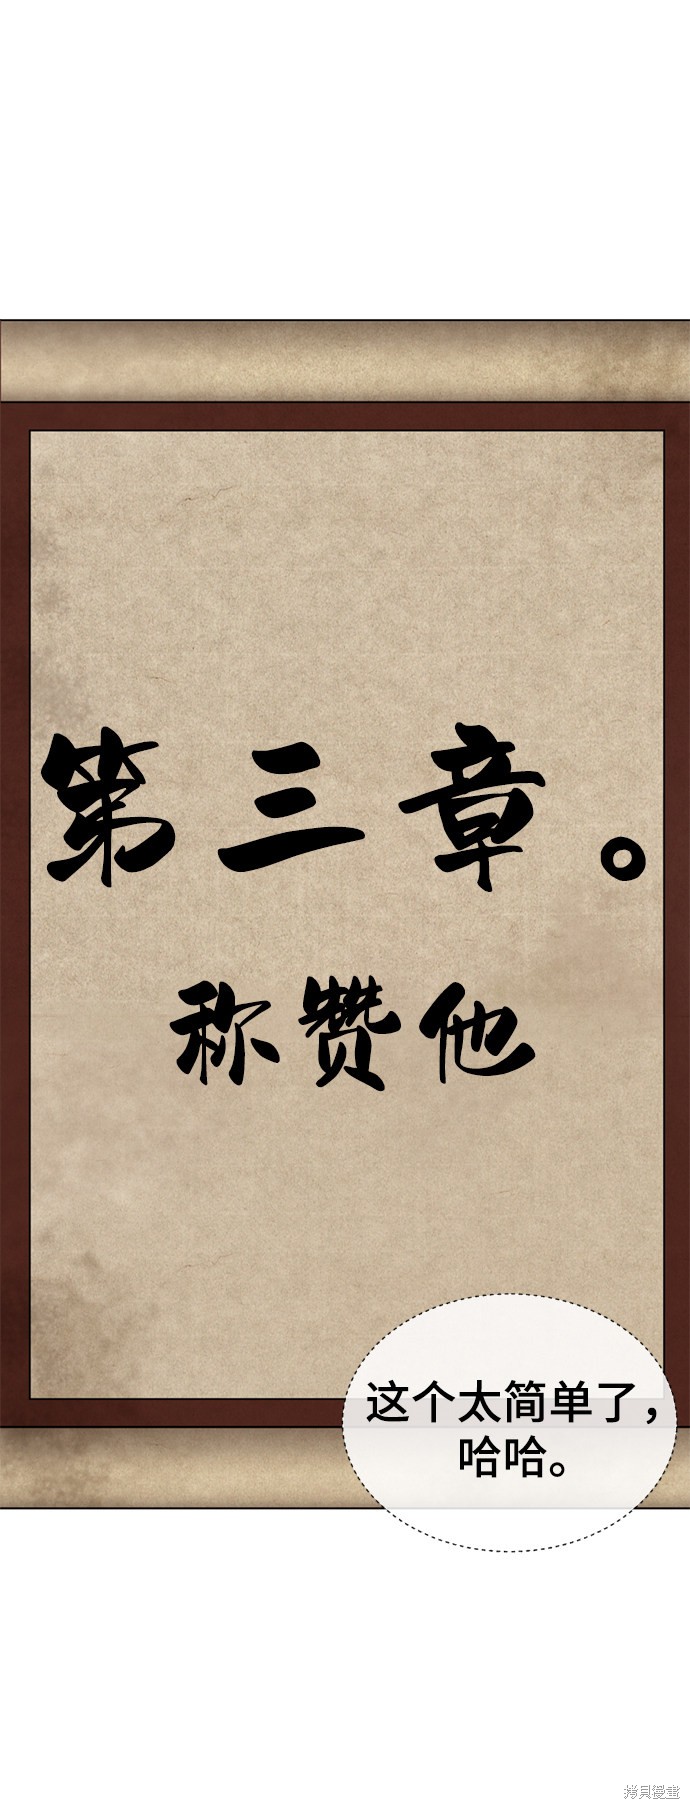 第三章。
称赞他
这个太简单了，
哈哈。
拷貝漫畫